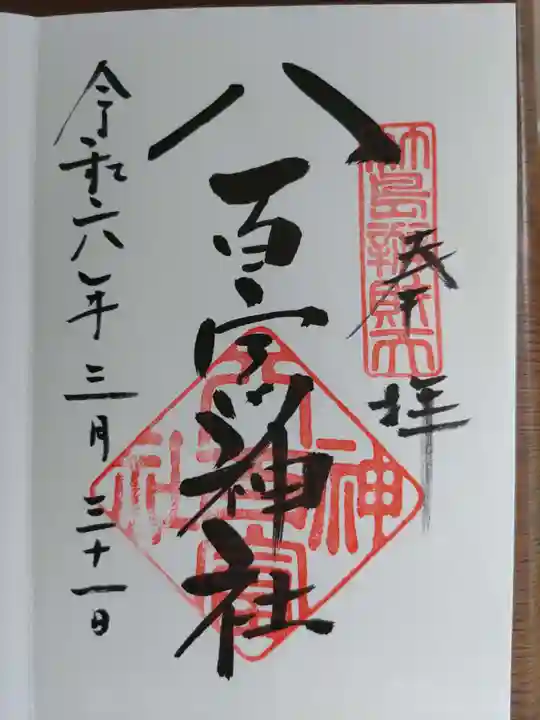 竹島辯財天
奉拝
八百富神社
令和六年三月三十一日
八百富神社